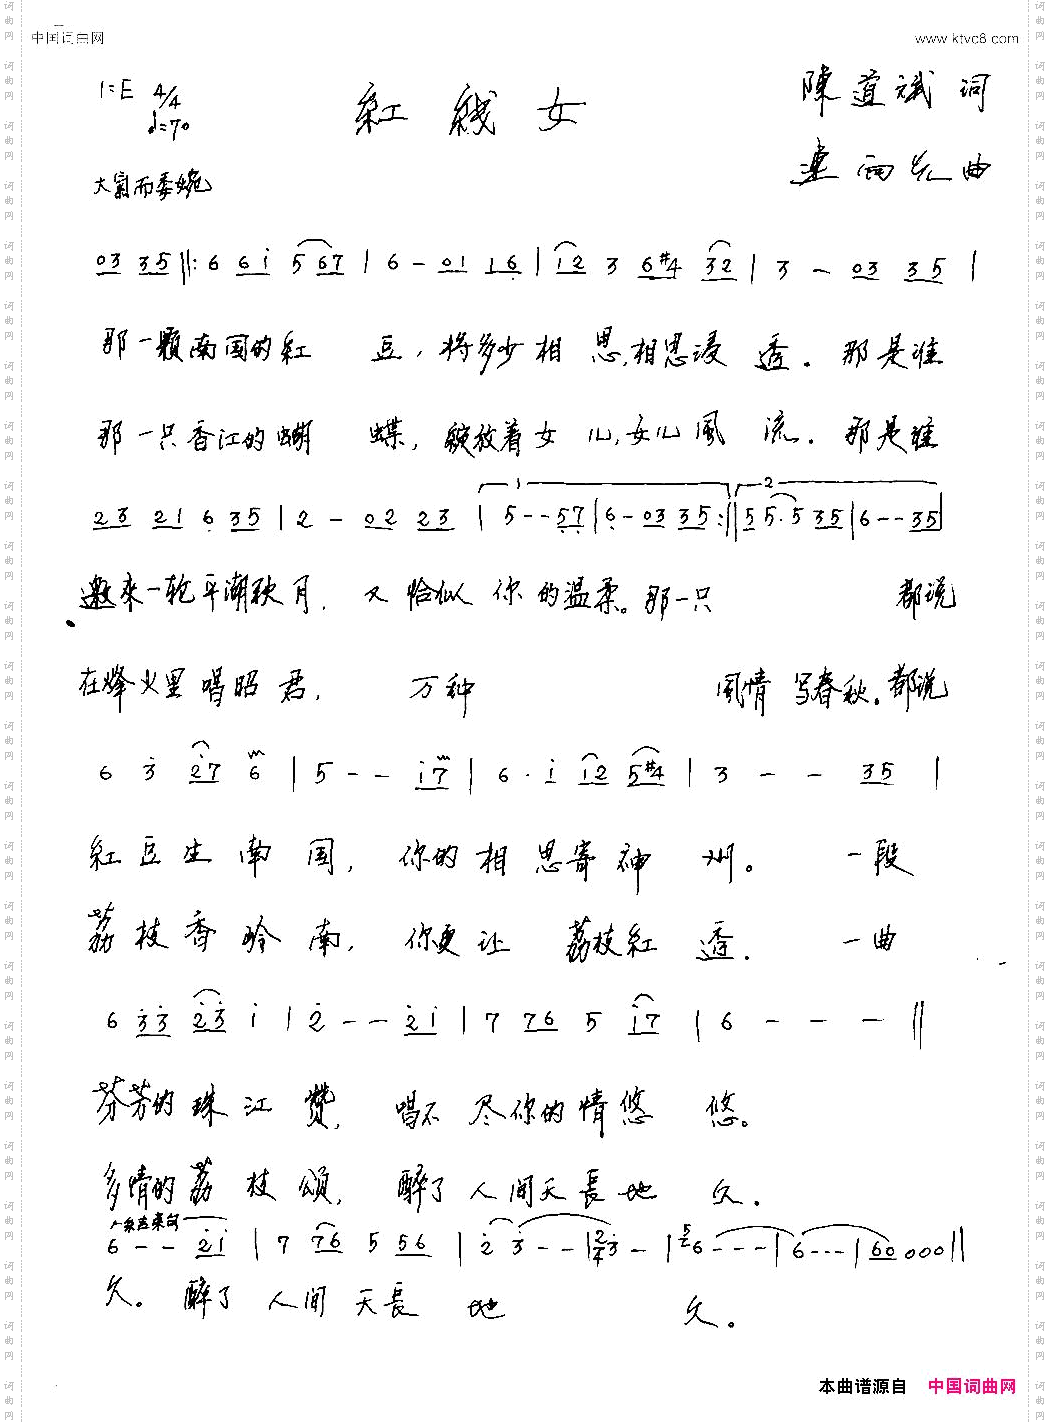 中国词曲网
www.ktvc8.com
1=E 4/4
♩=70
紅 綫 女
陳道斌 词
曲
大氣而委婉
03 35 ||: 6 61 5 67 | 6 - 01 16 | 12 3 6#4 32 | 3 - 03 35 |
那一颗南国的紅 豆，将多少相 思,相思浸 透。那是谁
那一只香江的蝴 蝶，綻放着女 儿,女儿風 流．那是谁
23 21 6 35 | 2 - 02 23 | 1 5--57 | 6-03 35 :|| 2 55·5 35 | 6--35
邀来一轮平潮秋月．又恰似 你的温柔。那一只 都说
在烽火里唱昭君， 万种 風情 写春秋。都说
6 3 27 6 | 5 - - 17 | 6· 1 12 5#4 | 3 - - 35 |
紅豆生南国， 你的相思寄神州。 一段
荔枝香岭南， 你更让 荔枝紅透． 一曲
6 33 23 1 | 2 - - 21 | 7 76 5 17 | 6 - - - ||
芬芳的珠江赞， 唱不尽你的情悠悠。
多情的荔枝颂， 醉了人间天長地久．
结束句
6 - - 21 | 7 76 5 56 | 2 3 - - | 2/4 3 - | 6 - - - | 6 - - - | 60 000 ||
久。醉了人间天長 地 久。
本曲谱源自 中国词曲网